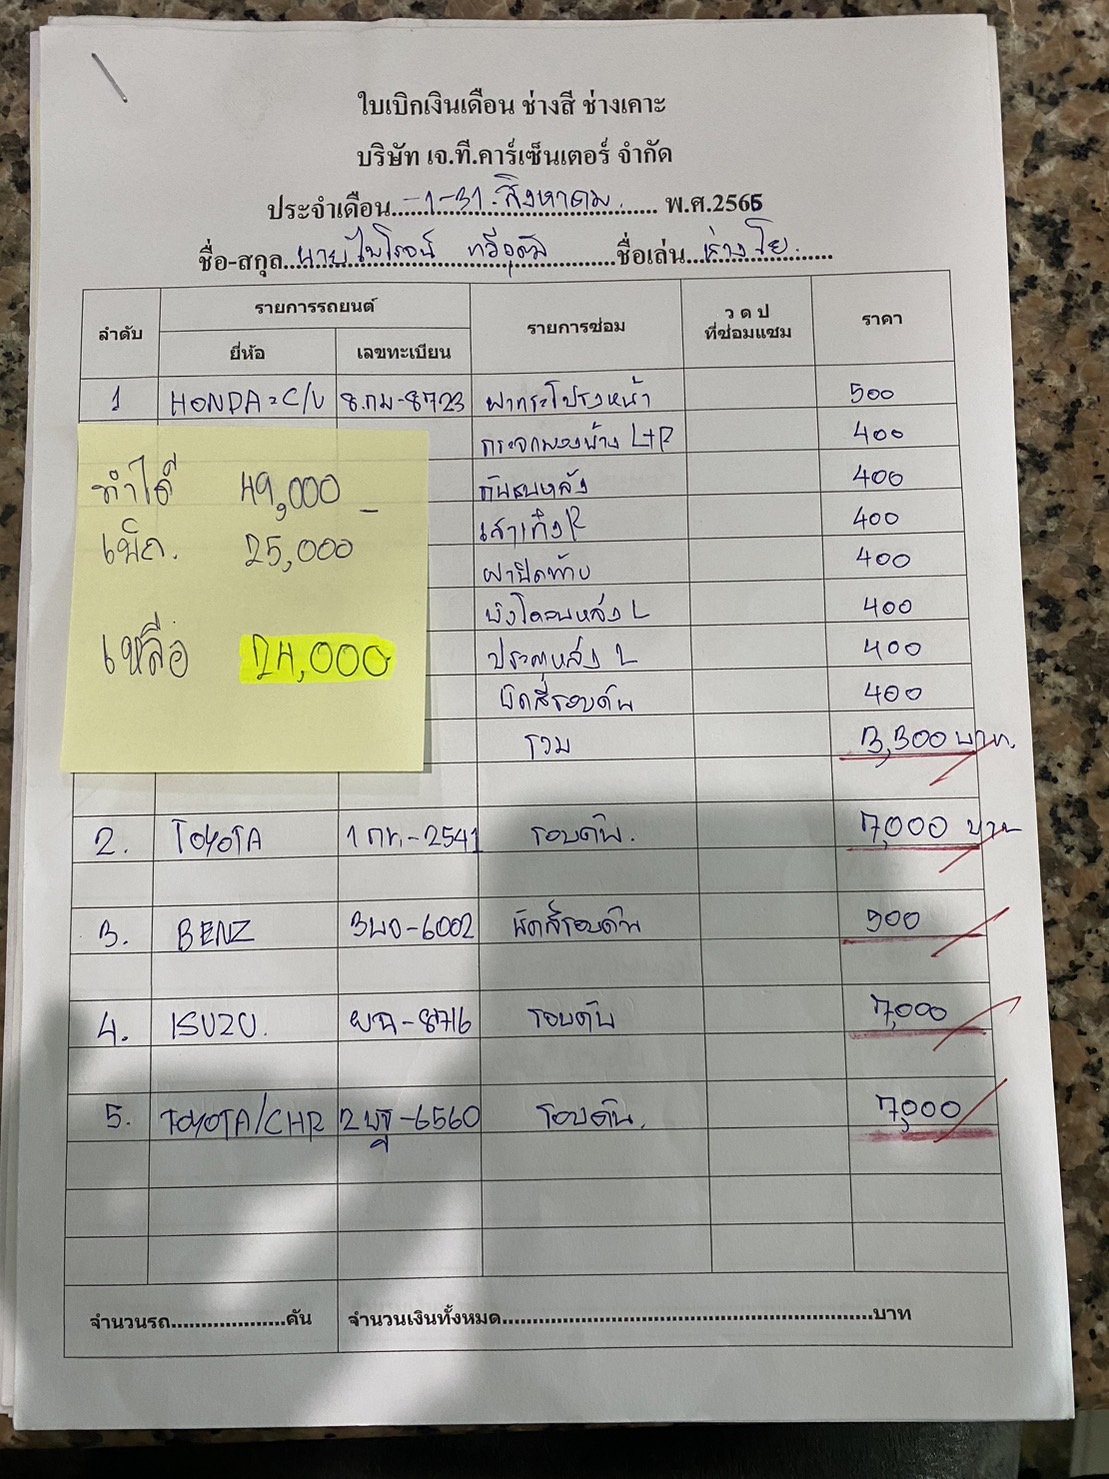 ใบเบิกเงินเดือน ช่างสี ช่างเคาะ
บริษัท เจ.ที.คาร์เซ็นเตอร์ จำกัด
ประจำเดือน 1-31 สิงหาคม พ.ศ.2565
ชื่อ-สกุล นายไพโรจน์ ชื่อเล่น ช่างโย
ลำดับ รายการรถยนต์ รายการซ่อม ว ด ป ที่ซ่อมแซม ราคา
ยี่ห้อ เลขทะเบียน
1 HONDA C/V 8กม-8723 ฝากระโปรงหน้า 500
กระจกมองข้าง L+R 400
กันชนหลัง 400
เสาเก๋ง R 400
ฝาปิดท้าย 400
บังโคลนหลัง L 400
ประตูหลัง L 400
ขัดสีรอบคัน 400
รวม 3,300 บาท.
2. TOYOTA 1กท-2541 รอบคัน. 7,000 บาท
3. BENZ -6002 ขัดสีรอบคัน 900
4. ISUZU. -8716 รอบคัน 7,000
5. TOYOTA/CHR -6560 รอบคัน. 7,000
จำนวนรถ คัน จำนวนเงินทั้งหมด บาท
ทำได้ 49,000 _
เบิก. 25,000
เหลือ 24,000